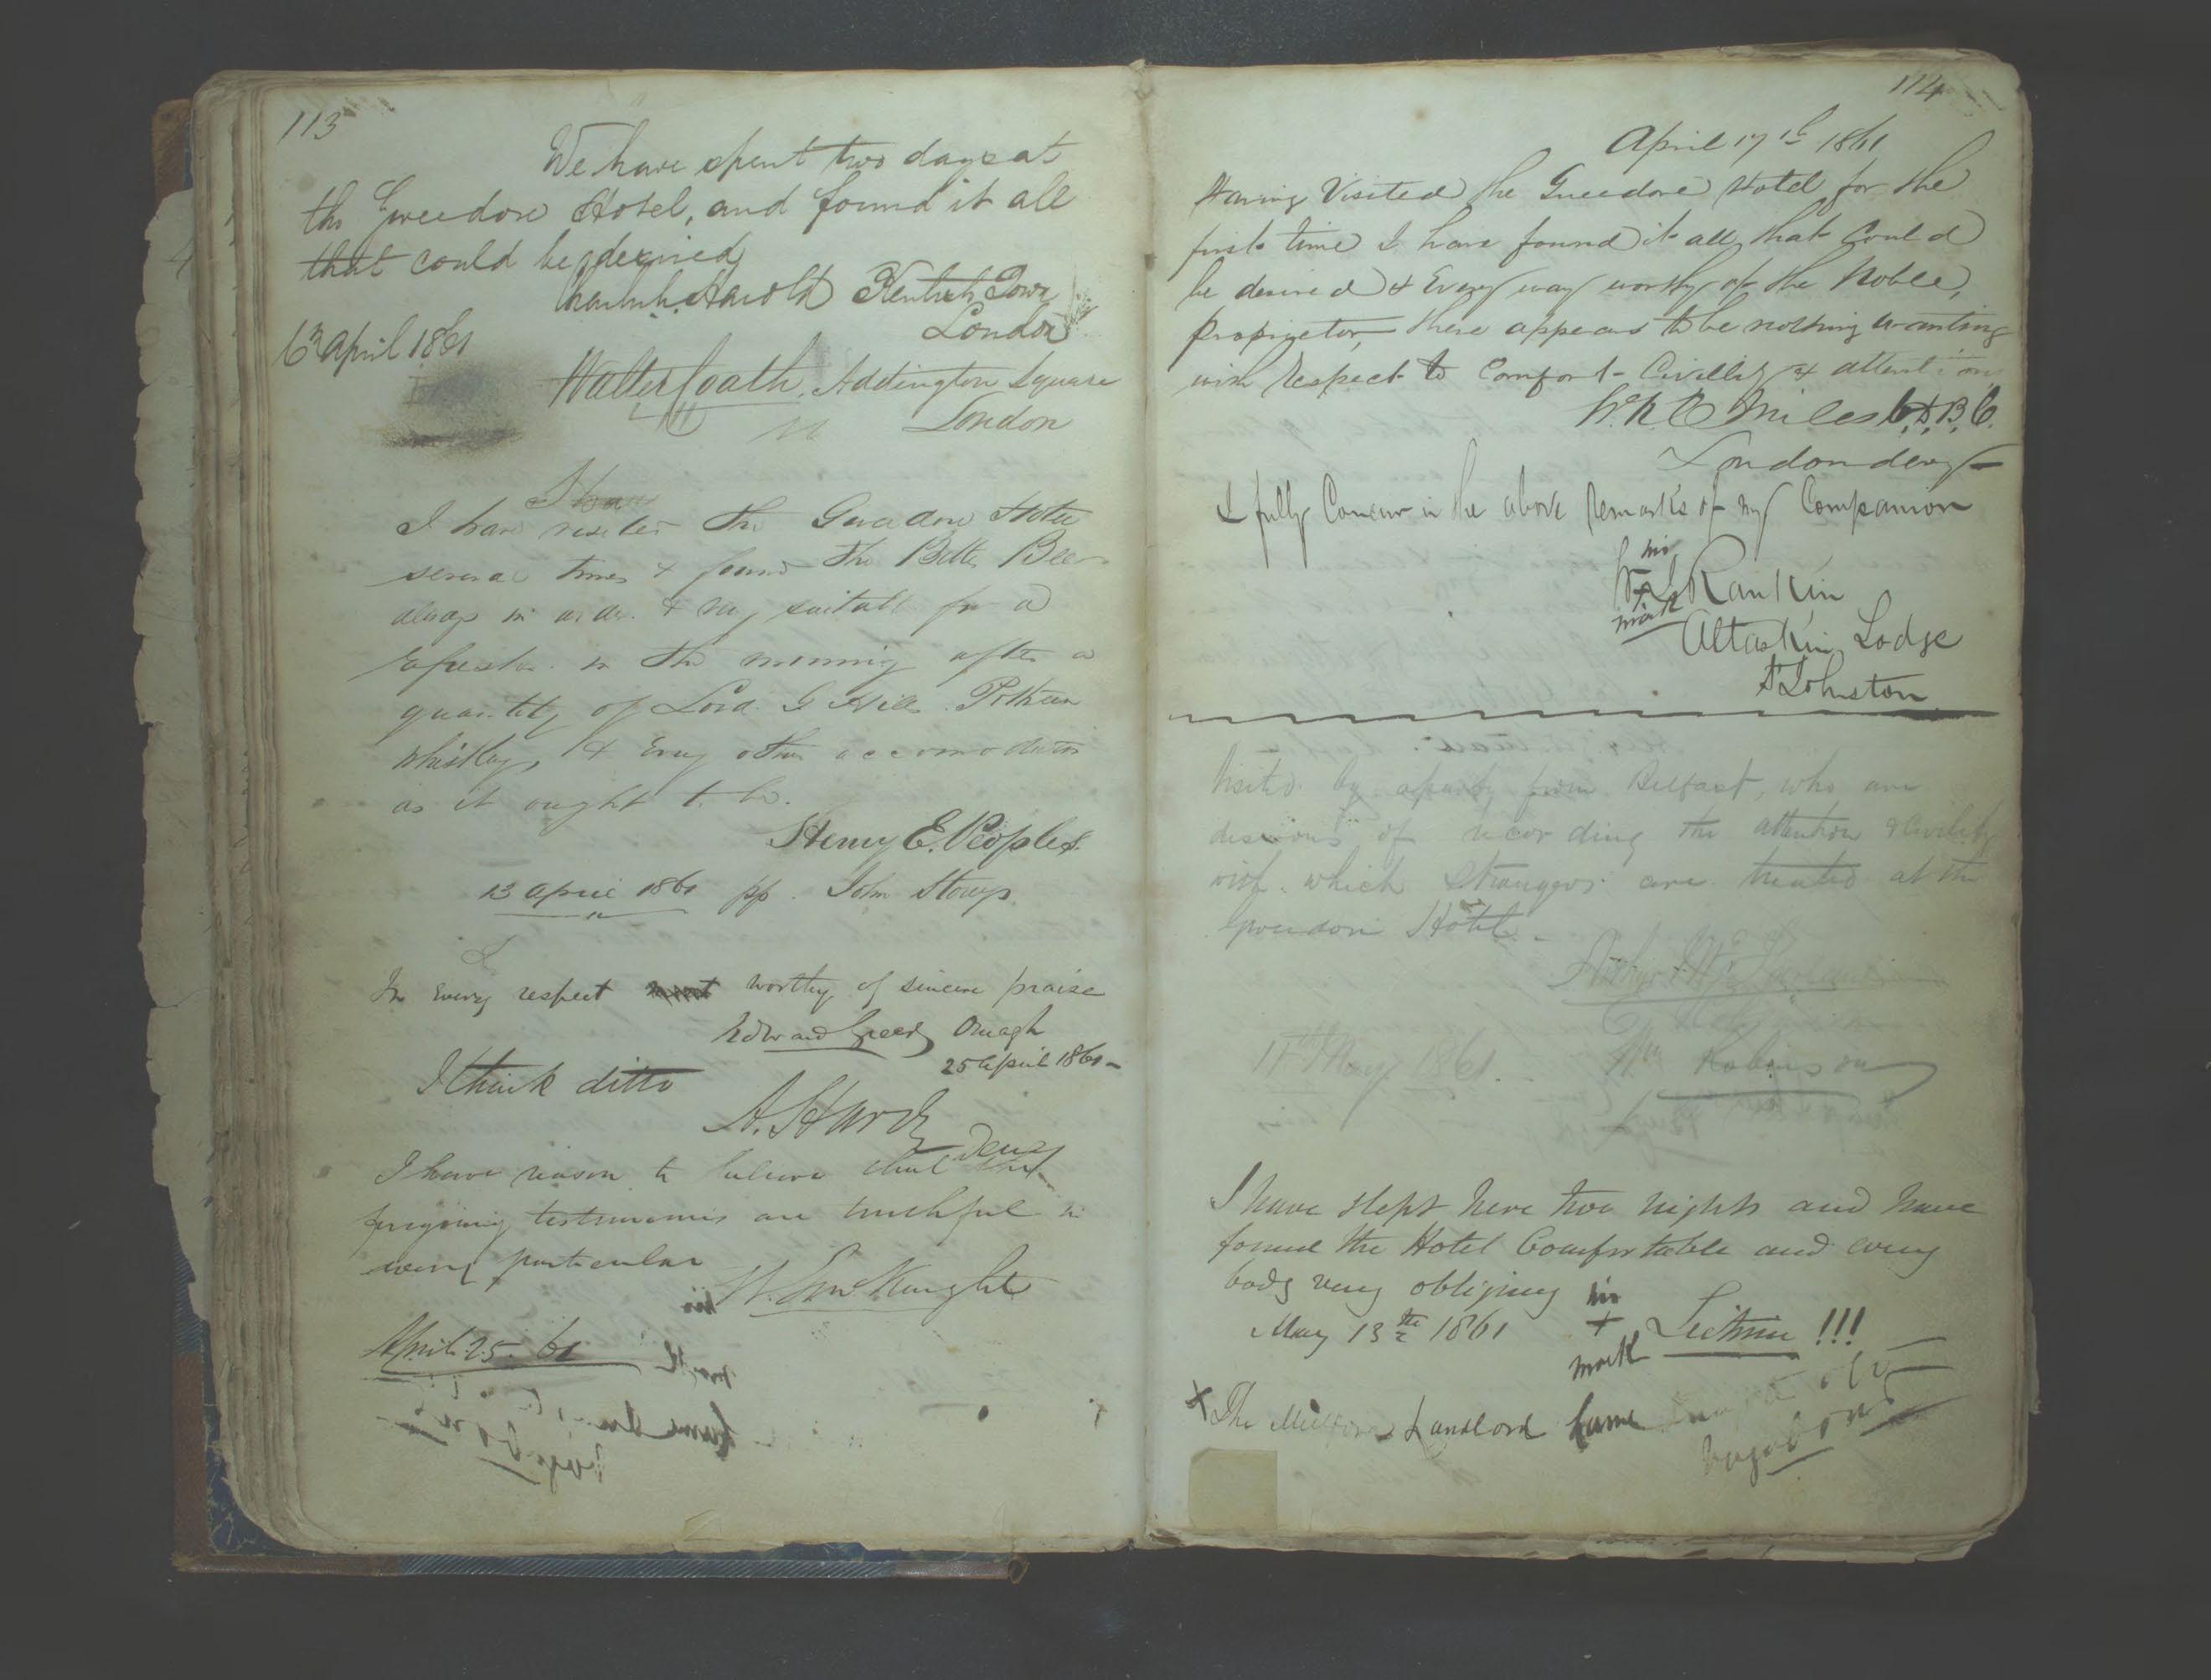 113
We have spent two days at
the Gweedore Hotel, and found it all
that could be desired
Harold Kentish Town
London
6 April 1861
Walter Coath, Addington Square
London
I have
I have visited the Gweedore Hotel
several times & found the Bitter Beer
always in order & very suitable for a
in the morning after a
quantity of Lord G Hill Potheen
whiskey, & every other accomodation
as it ought to be.
Henry E. Peoples
13 April 1861 pp. John
In every respect worthy of sincere praise
Edward Greer Omagh
25 April 1861
I think ditto
A. Hardy
Derry
I have reason to believe that the
foregoing testimonies are truthful in
every particular
W. McKnight
April 25. 61
114
April 17th 1861
Having Visited the Gweedore Hotel for the
first time I have found it all that Could
be desired & Every way worthy of the Noble
Proprietor, there appears to be nothing wanting
with Respect to Comfort Civility & attention
Miles
Londonderry
I fully Concur in the above Remarks of my Companion
his
Rankin
mark
Altaskin Lodge
St Johnston
Visited by a party from Belfast, who are
desirous of recording the attention & civility
with which Strangers are treated at the
Gweedore Hotel
Arthur
May 1861. Wm Robinson
I have slept here two nights and have
found the Hotel Comfortable and every
body very obliging
his
May 13th 1861 + Leitrim !!!
mark
X The Landlord
vagabond